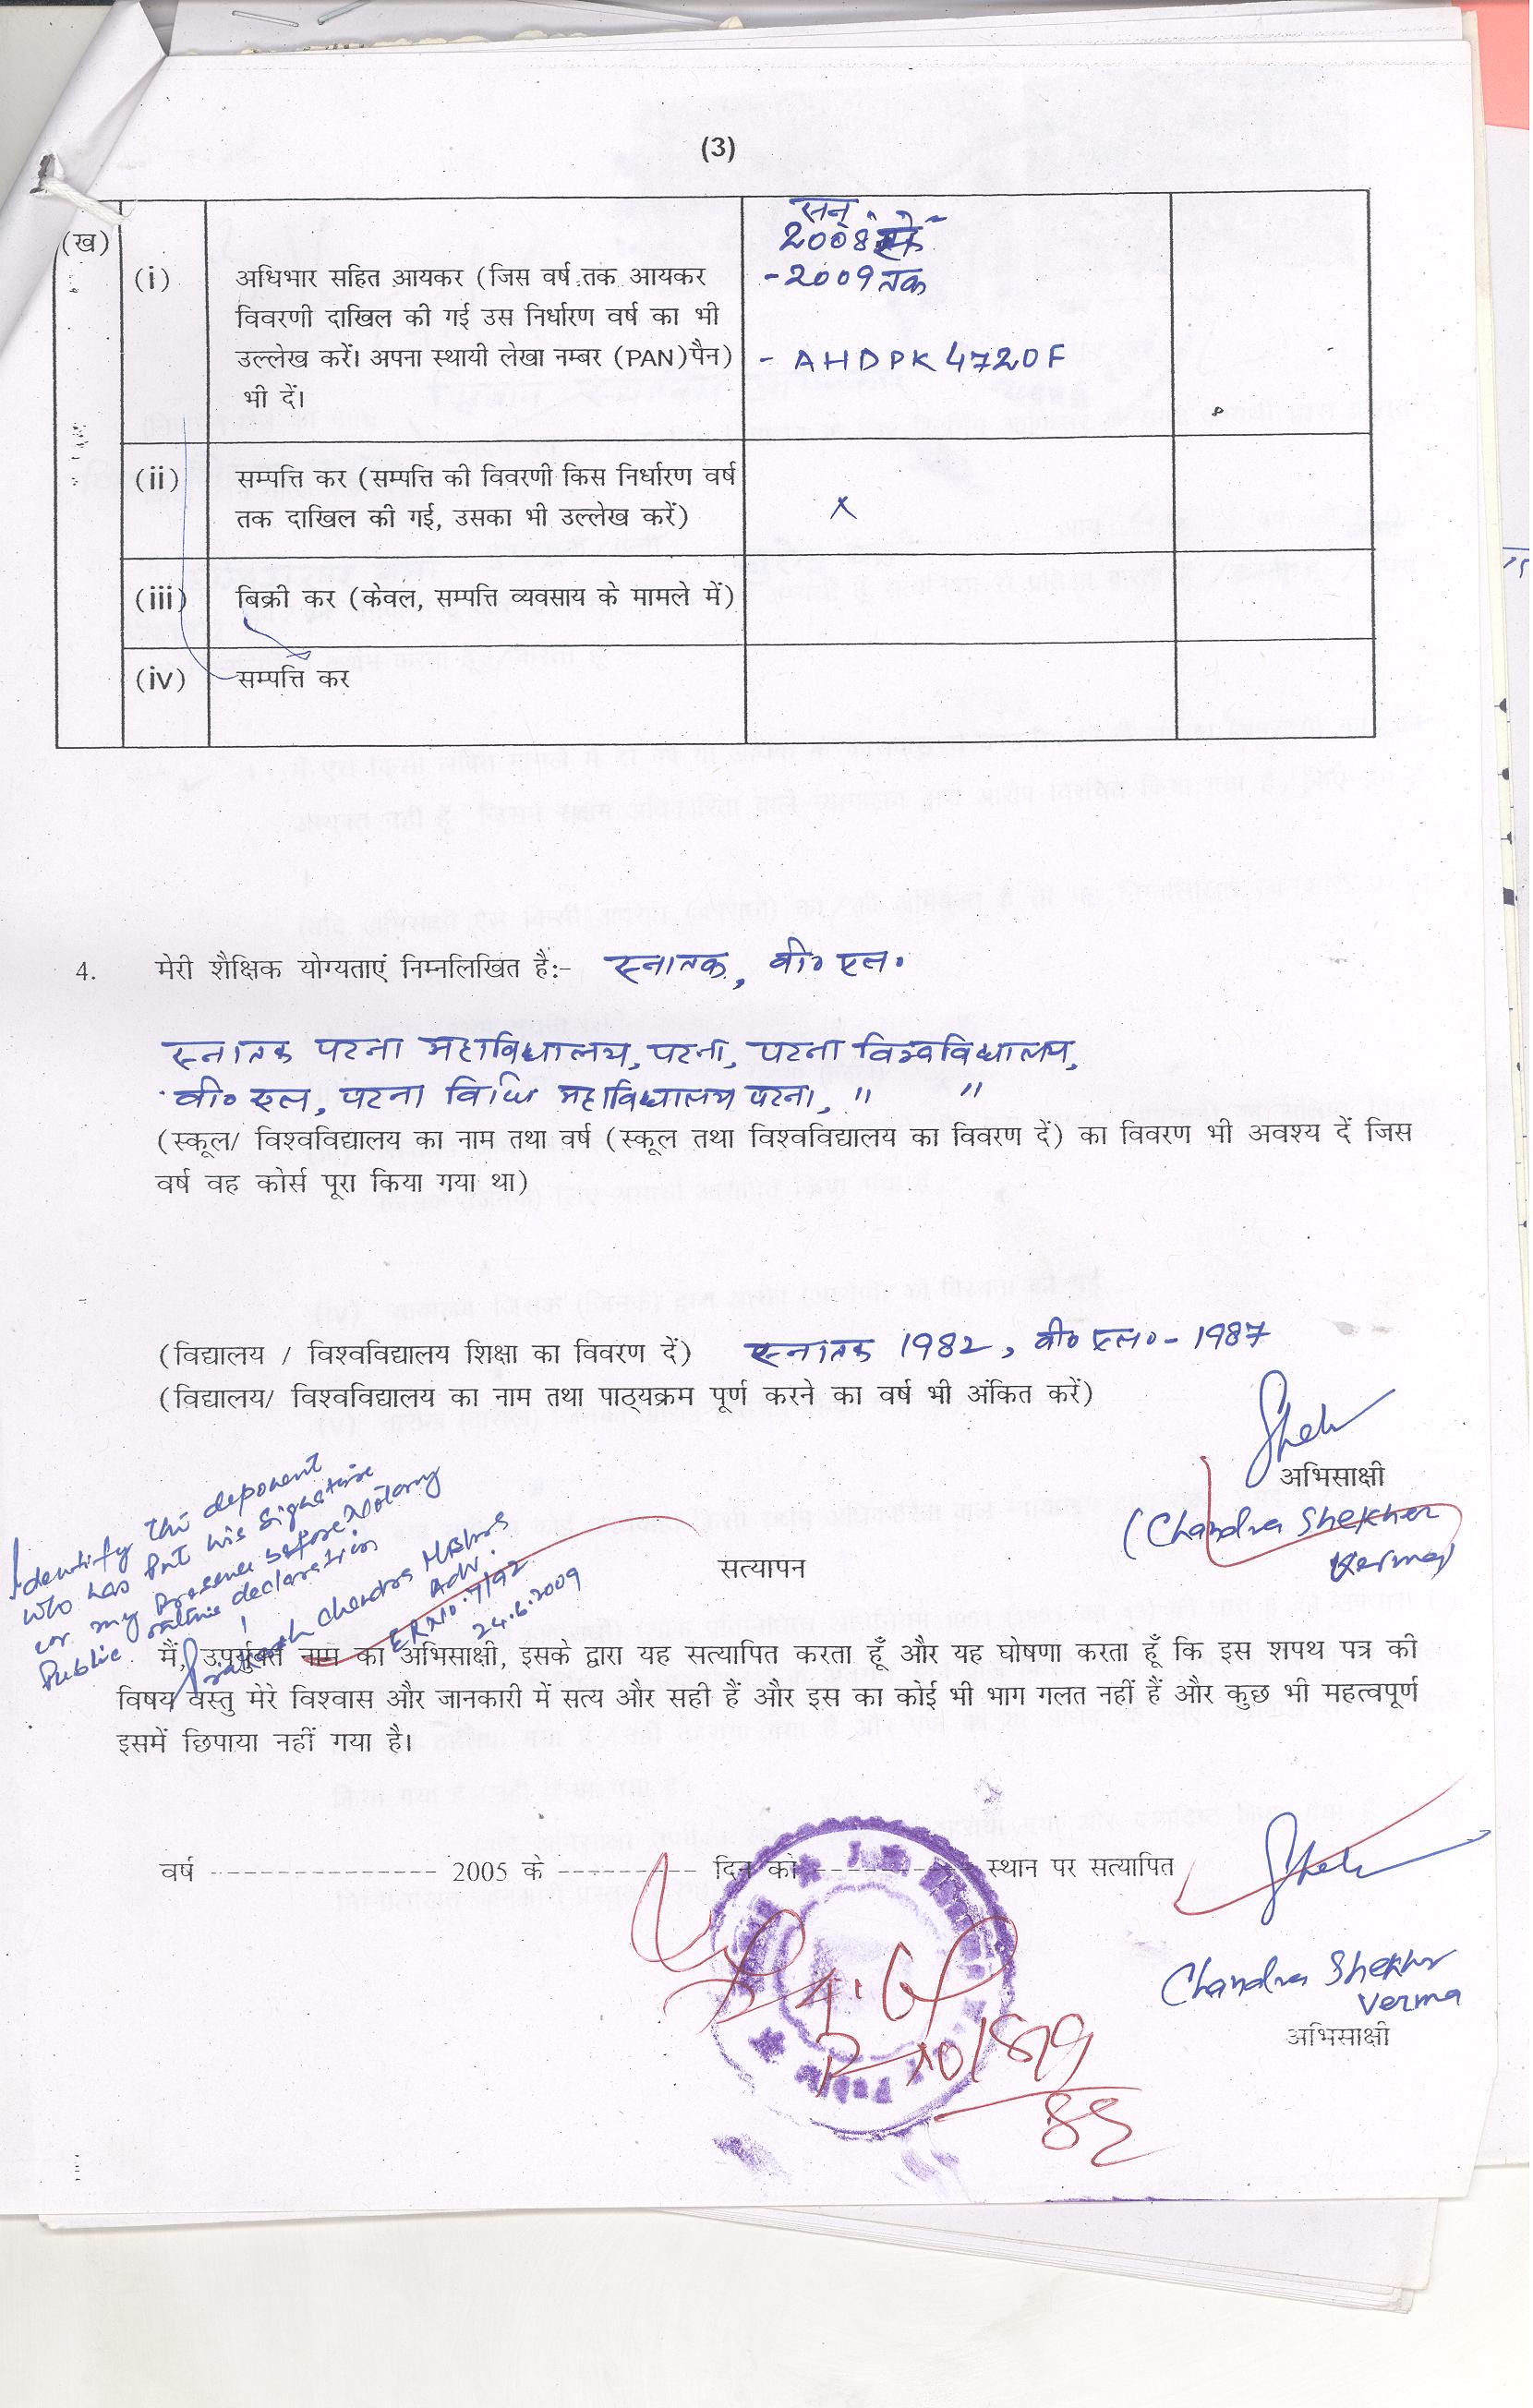 (3)
(ख)
सन्
2008
(i) अधिभार सहित आयकर (जिस वर्ष तक आयकर
- 2009 तक
विवरणी दाखिल की गई उस निर्धारण वर्ष का भी
उल्लेख करें। अपना स्थायी लेखा नम्बर (PAN) पैन)
- AHDPK4720F
भी दें।
(ii) सम्पत्ति कर (सम्पत्ति की विवरणी किस निर्धारण वर्ष
तक दाखिल की गई, उसका भी उल्लेख करें)
x
(iii) बिक्री कर (केवल, सम्पत्ति व्यवसाय के मामले में)
(iv) सम्पत्ति कर
4. मेरी शैक्षिक योग्यताएं निम्नलिखित हैः- स्नातक, बी० एल०
स्नातक पटना महाविद्यालय, पटना, पटना विश्वविद्यालय,
बी० एल, पटना विधि महाविद्यालय पटना, " "
(स्कूल/ विश्वविद्यालय का नाम तथा वर्ष (स्कूल तथा विश्वविद्यालय का विवरण दें) का विवरण भी अवश्य दें जिस
वर्ष वह कोर्स पूरा किया गया था)
(विद्यालय / विश्वविद्यालय शिक्षा का विवरण दें) स्नातक 1982, बी० एल० - 1987
(विद्यालय/ विश्वविद्यालय का नाम तथा पाठ्यक्रम पूर्ण करने का वर्ष भी अंकित करें)
अभिसाक्षी
(Chandra Shekher
Verma)
Identify the deponent
who has put his signature
in my presence before Notary
Public declaration
Chandra
Adv.
ERNo. 7/92
24.6.2009
सत्यापन
मैं, उपर्युक्त नाम का अभिसाक्षी, इसके द्वारा यह सत्यापित करता हूँ और यह घोषणा करता हूँ कि इस शपथ पत्र की
विषय वस्तु मेरे विश्वास और जानकारी में सत्य और सही हैं और इस का कोई भी भाग गलत नहीं हैं और कुछ भी महत्वपूर्ण
इसमें छिपाया नहीं गया है।
वर्ष ---------------- 2005 के ---------- दिन को ---------- स्थान पर सत्यापित
Chandra Shekhr
Verma
अभिसाक्षी